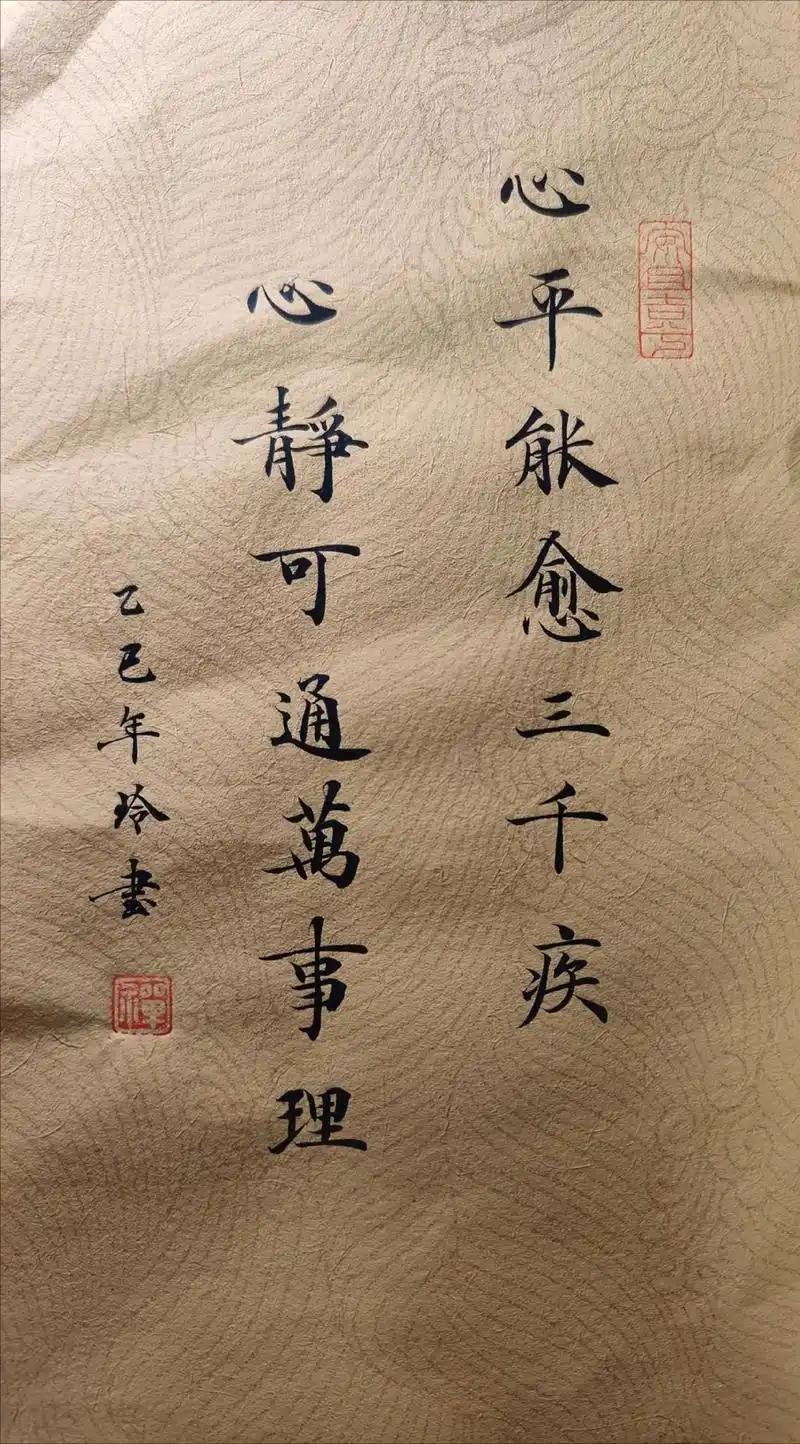 心平能愈三千疾
心靜可通萬事理
乙巳年玲書
禪